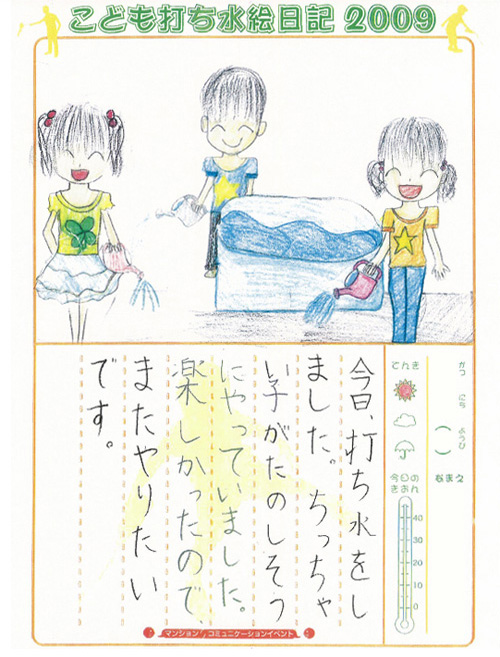 こども打ち水絵日記 2009
がつ にち ようび
( )
なまえ
てんき
今日の
きおん
40
30
20
10
0
今日、打ち水をし
ました。ちっちゃ
い子がたのしそう
にやっていました。
楽しかったので、
またやりたい
です。
マンション コミュニケーションイベント